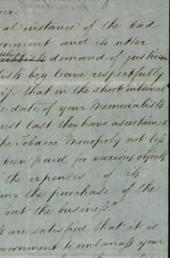 al instance of the bad
ernment and its utter
demand of justice
beg leave respectfully
that in the short interval
e date of your Memorialists
last they have ascertained
the Tobacco Monopoly not less
been paid for various objects
the expenses of its
the purchase of the
out the business"
are satisfied that it is
vernment to embarrass your